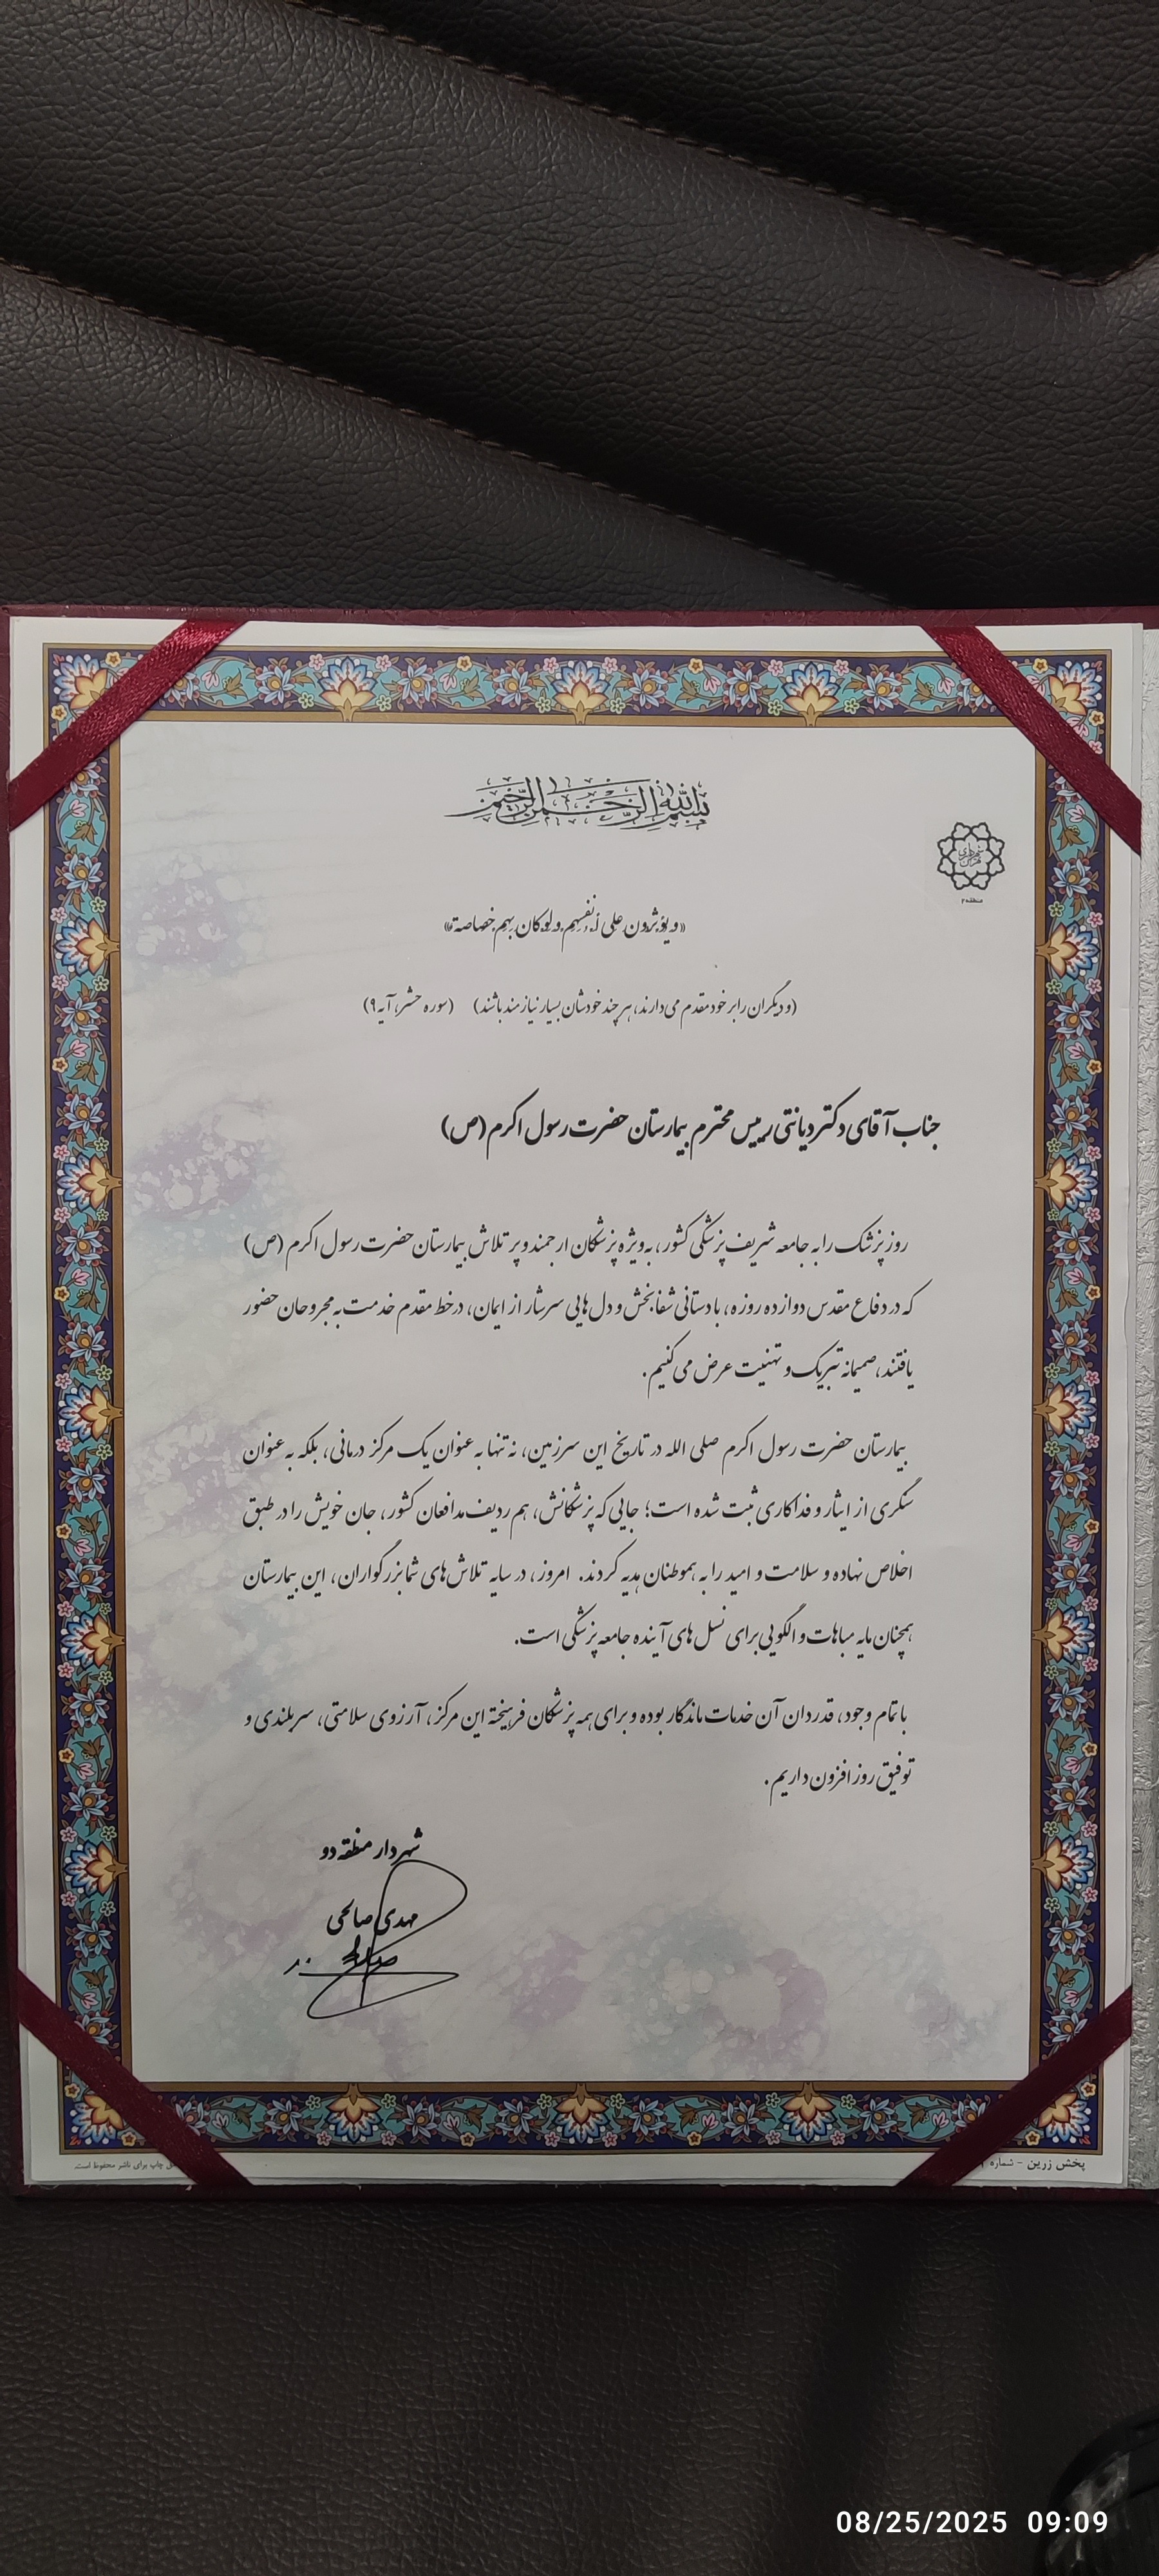 بسم الله الرحمن الرحیم
شهرداری تهران
منطقه ۲
«و یؤثرون علی أنفسهم و لو کان بهم خصاصة»
(و دیگران را بر خود مقدم می‌دارند، هر چند خودشان بسیار نیازمند باشند) (سوره حشر، آیه ۹)
جناب آقای دکتر دیانتی رییس محترم بیمارستان حضرت رسول اکرم (ص)
روز پزشک را به جامعه شریف پزشکی کشور، به‌ویژه پزشکان ارجمند و پر تلاش بیمارستان حضرت رسول اکرم (ص)
که در دفاع مقدس دوازده روزه، با دستانی شفابخش و دل‌هایی سرشار از ایمان، در خط مقدم خدمت به مجروحان حضور
یافتند، صمیمانه تبریک و تهنیت عرض می‌کنیم.
بیمارستان حضرت رسول اکرم صلی الله در تاریخ این سرزمین، نه تنها به عنوان یک مرکز درمانی، بلکه به عنوان
سنگری از ایثار و فداکاری ثبت شده است؛ جایی که پزشکانش، هم ردیف مدافعان کشور، جان خویش را در طبق
اخلاص نهاده و سلامت و امید را به هموطنان هدیه کردند. امروز، در سایه تلاش‌های شما بزرگواران، این بیمارستان
همچنان مایه مباهات و الگویی برای نسل‌های آینده جامعه پزشکی است.
با تمام وجود، قدردان آن خدمات ماندگار بوده و برای همه پزشکان فرهیخته این مرکز، آرزوی سلامتی، سربلندی و
توفیق روز افزون داریم.
شهردار منطقه دو
مهدی صالحی
پخش زرین - شماره
چاپ برای ناشر محفوظ است.
08/25/2025 09:09